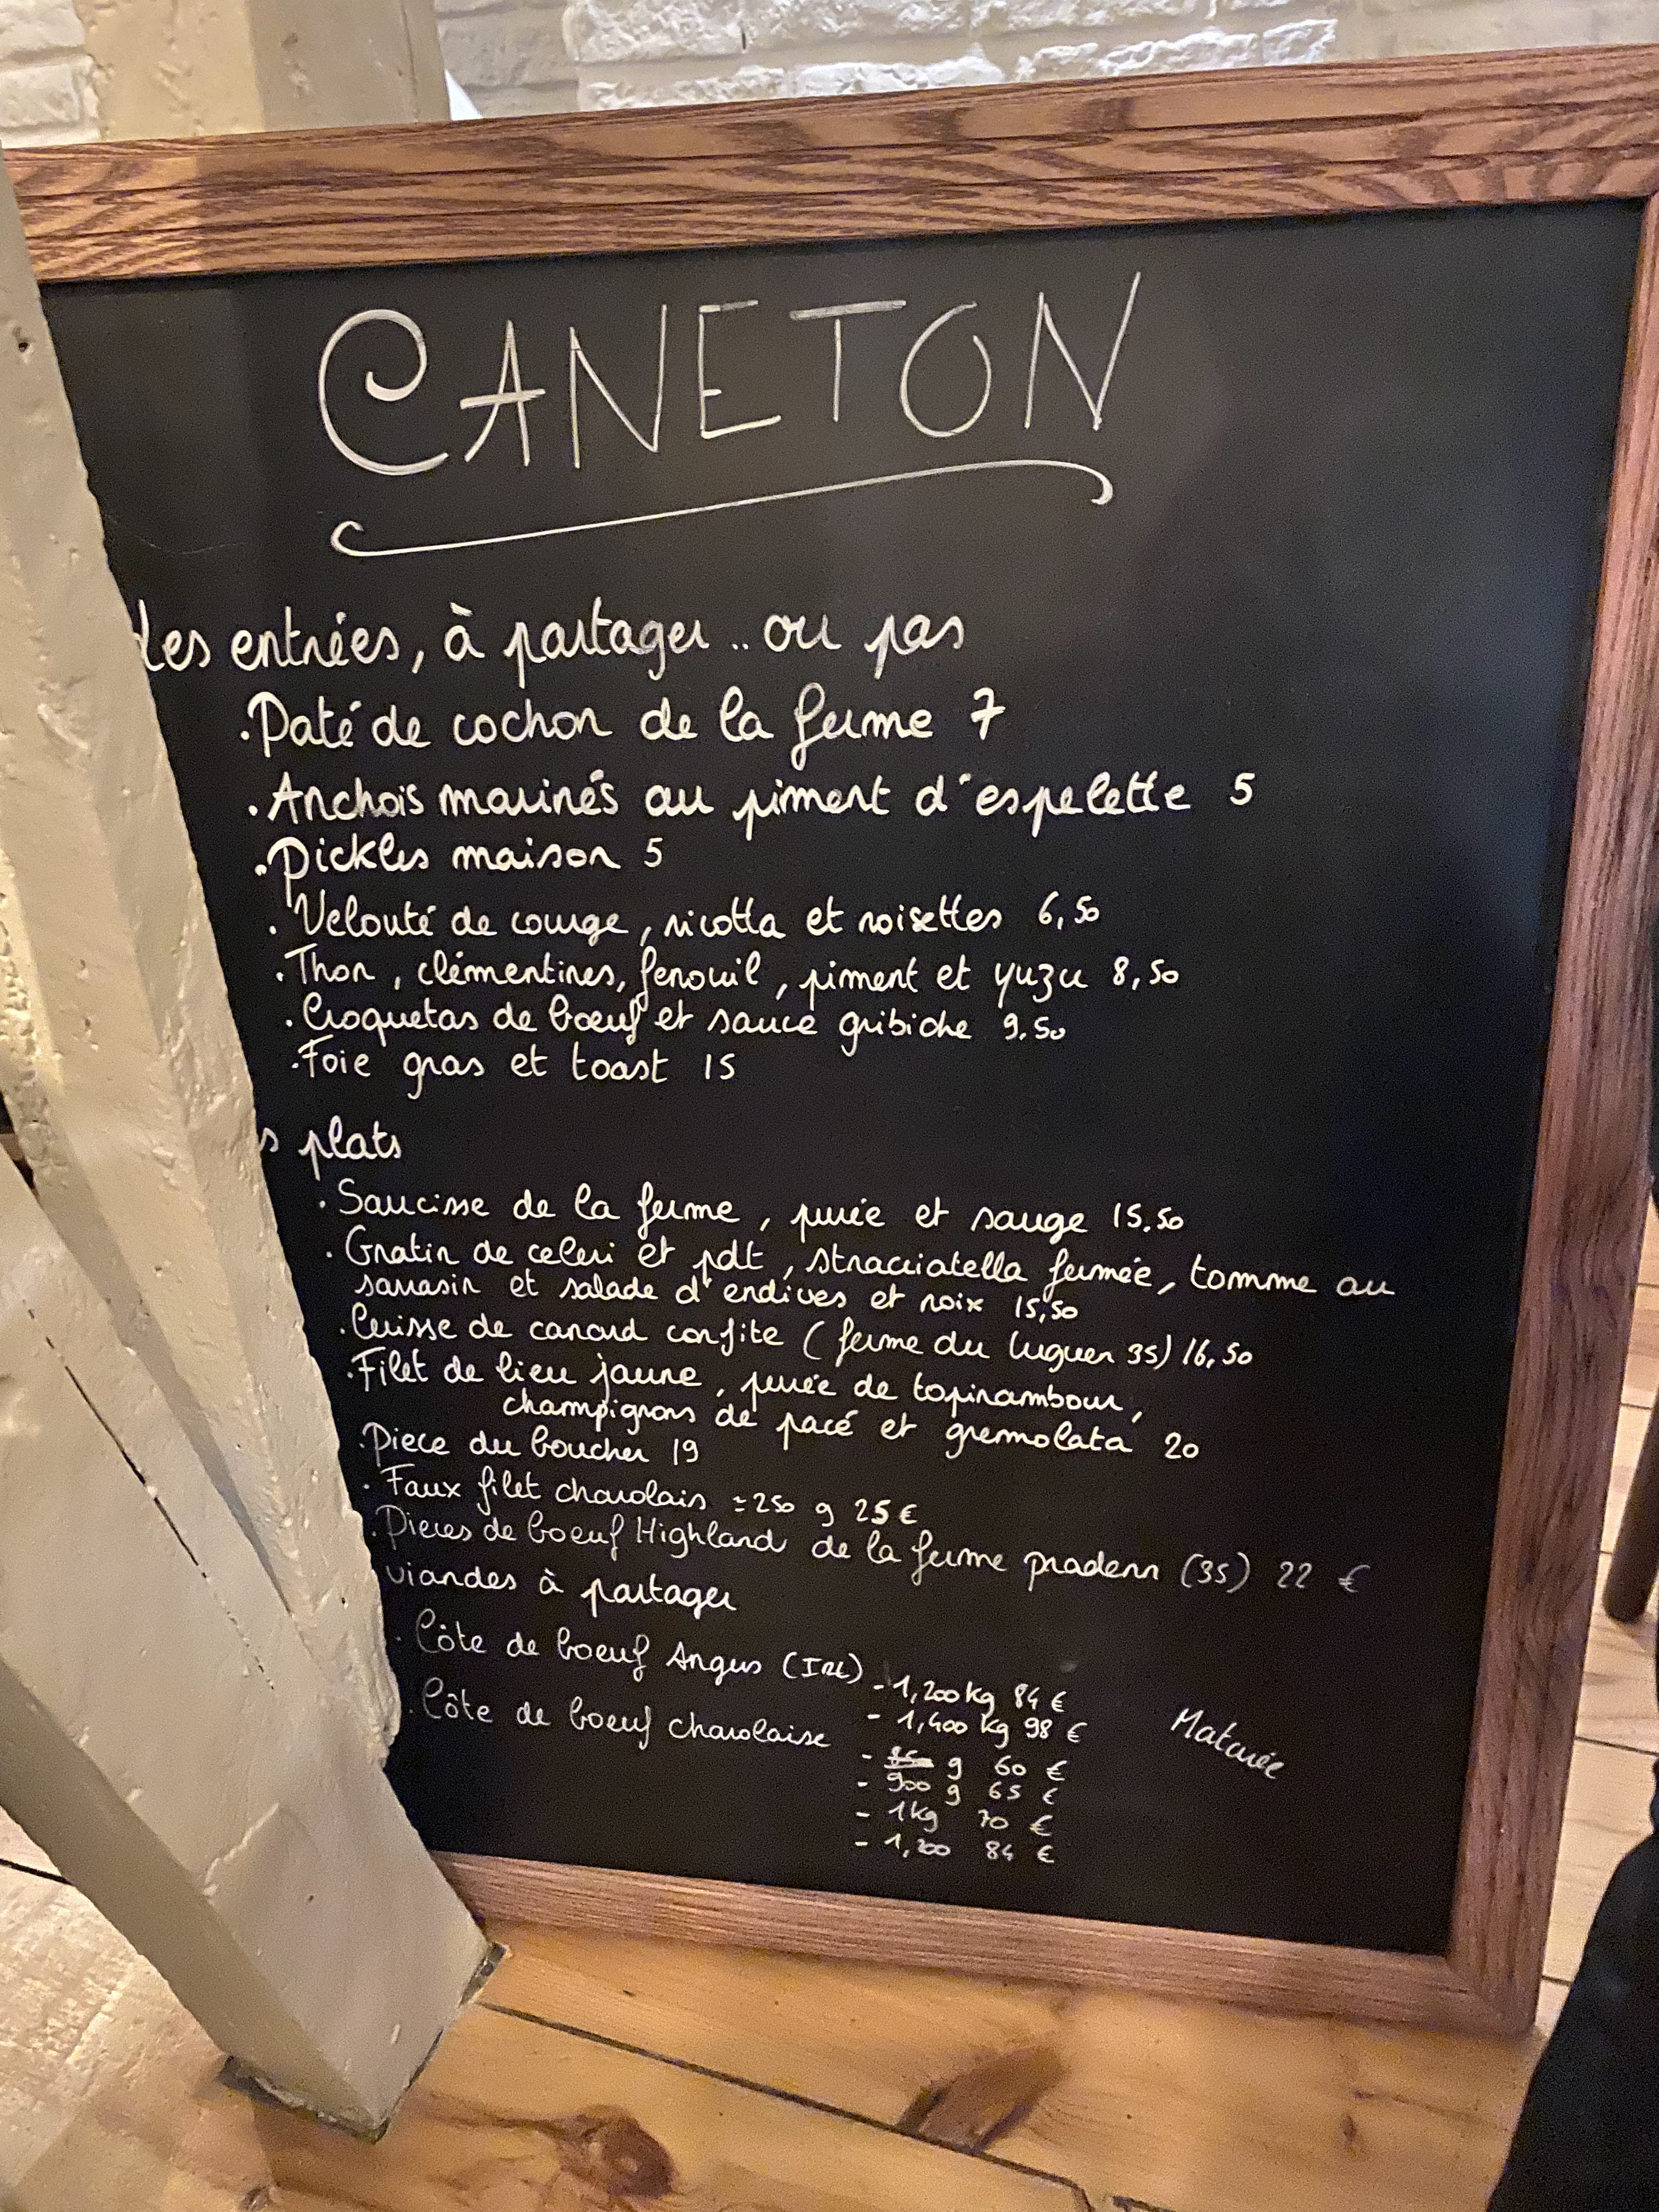 CANETON
Les entrées, à partager .. ou pas
. Paté de cochon de la ferme 7
. Anchois marinés au piment d'espelette 5
. Pickles maison 5
. Velouté de courge, ricotta et noisettes 6,50
. Thon, clémentines, fenouil, piment et yuzu 8,50
. Croquetas de boeuf et sauce gribiche 9.50
. Foie gras et toast 15
s plats
. Saucisse de la ferme, purée et sauge 15.50
. Gratin de celeri et pdt, stracciatella fumée, tomme au
sarrasin et salade d'endives et noix 15,50
. Cuisse de canard confite (ferme du luguen 35) 16,50
. Filet de lieu jaune, purée de topinambour,
champignons de pacé et gremolata 20
. Piece du boucher 19
. Faux filet charolais ≃ 250 g 25 €
. Pieces de boeuf Highland de la ferme pradenn (35) 22 €
viandes à partager
. Côte de boeuf Angus (IRL) - 1,200 kg 84 €
- 1,400 kg 98 €
Maturée
. Côte de boeuf charolaise
- 850 g 60 €
- 900 g 65 €
- 1kg 70 €
- 1,200 84 €